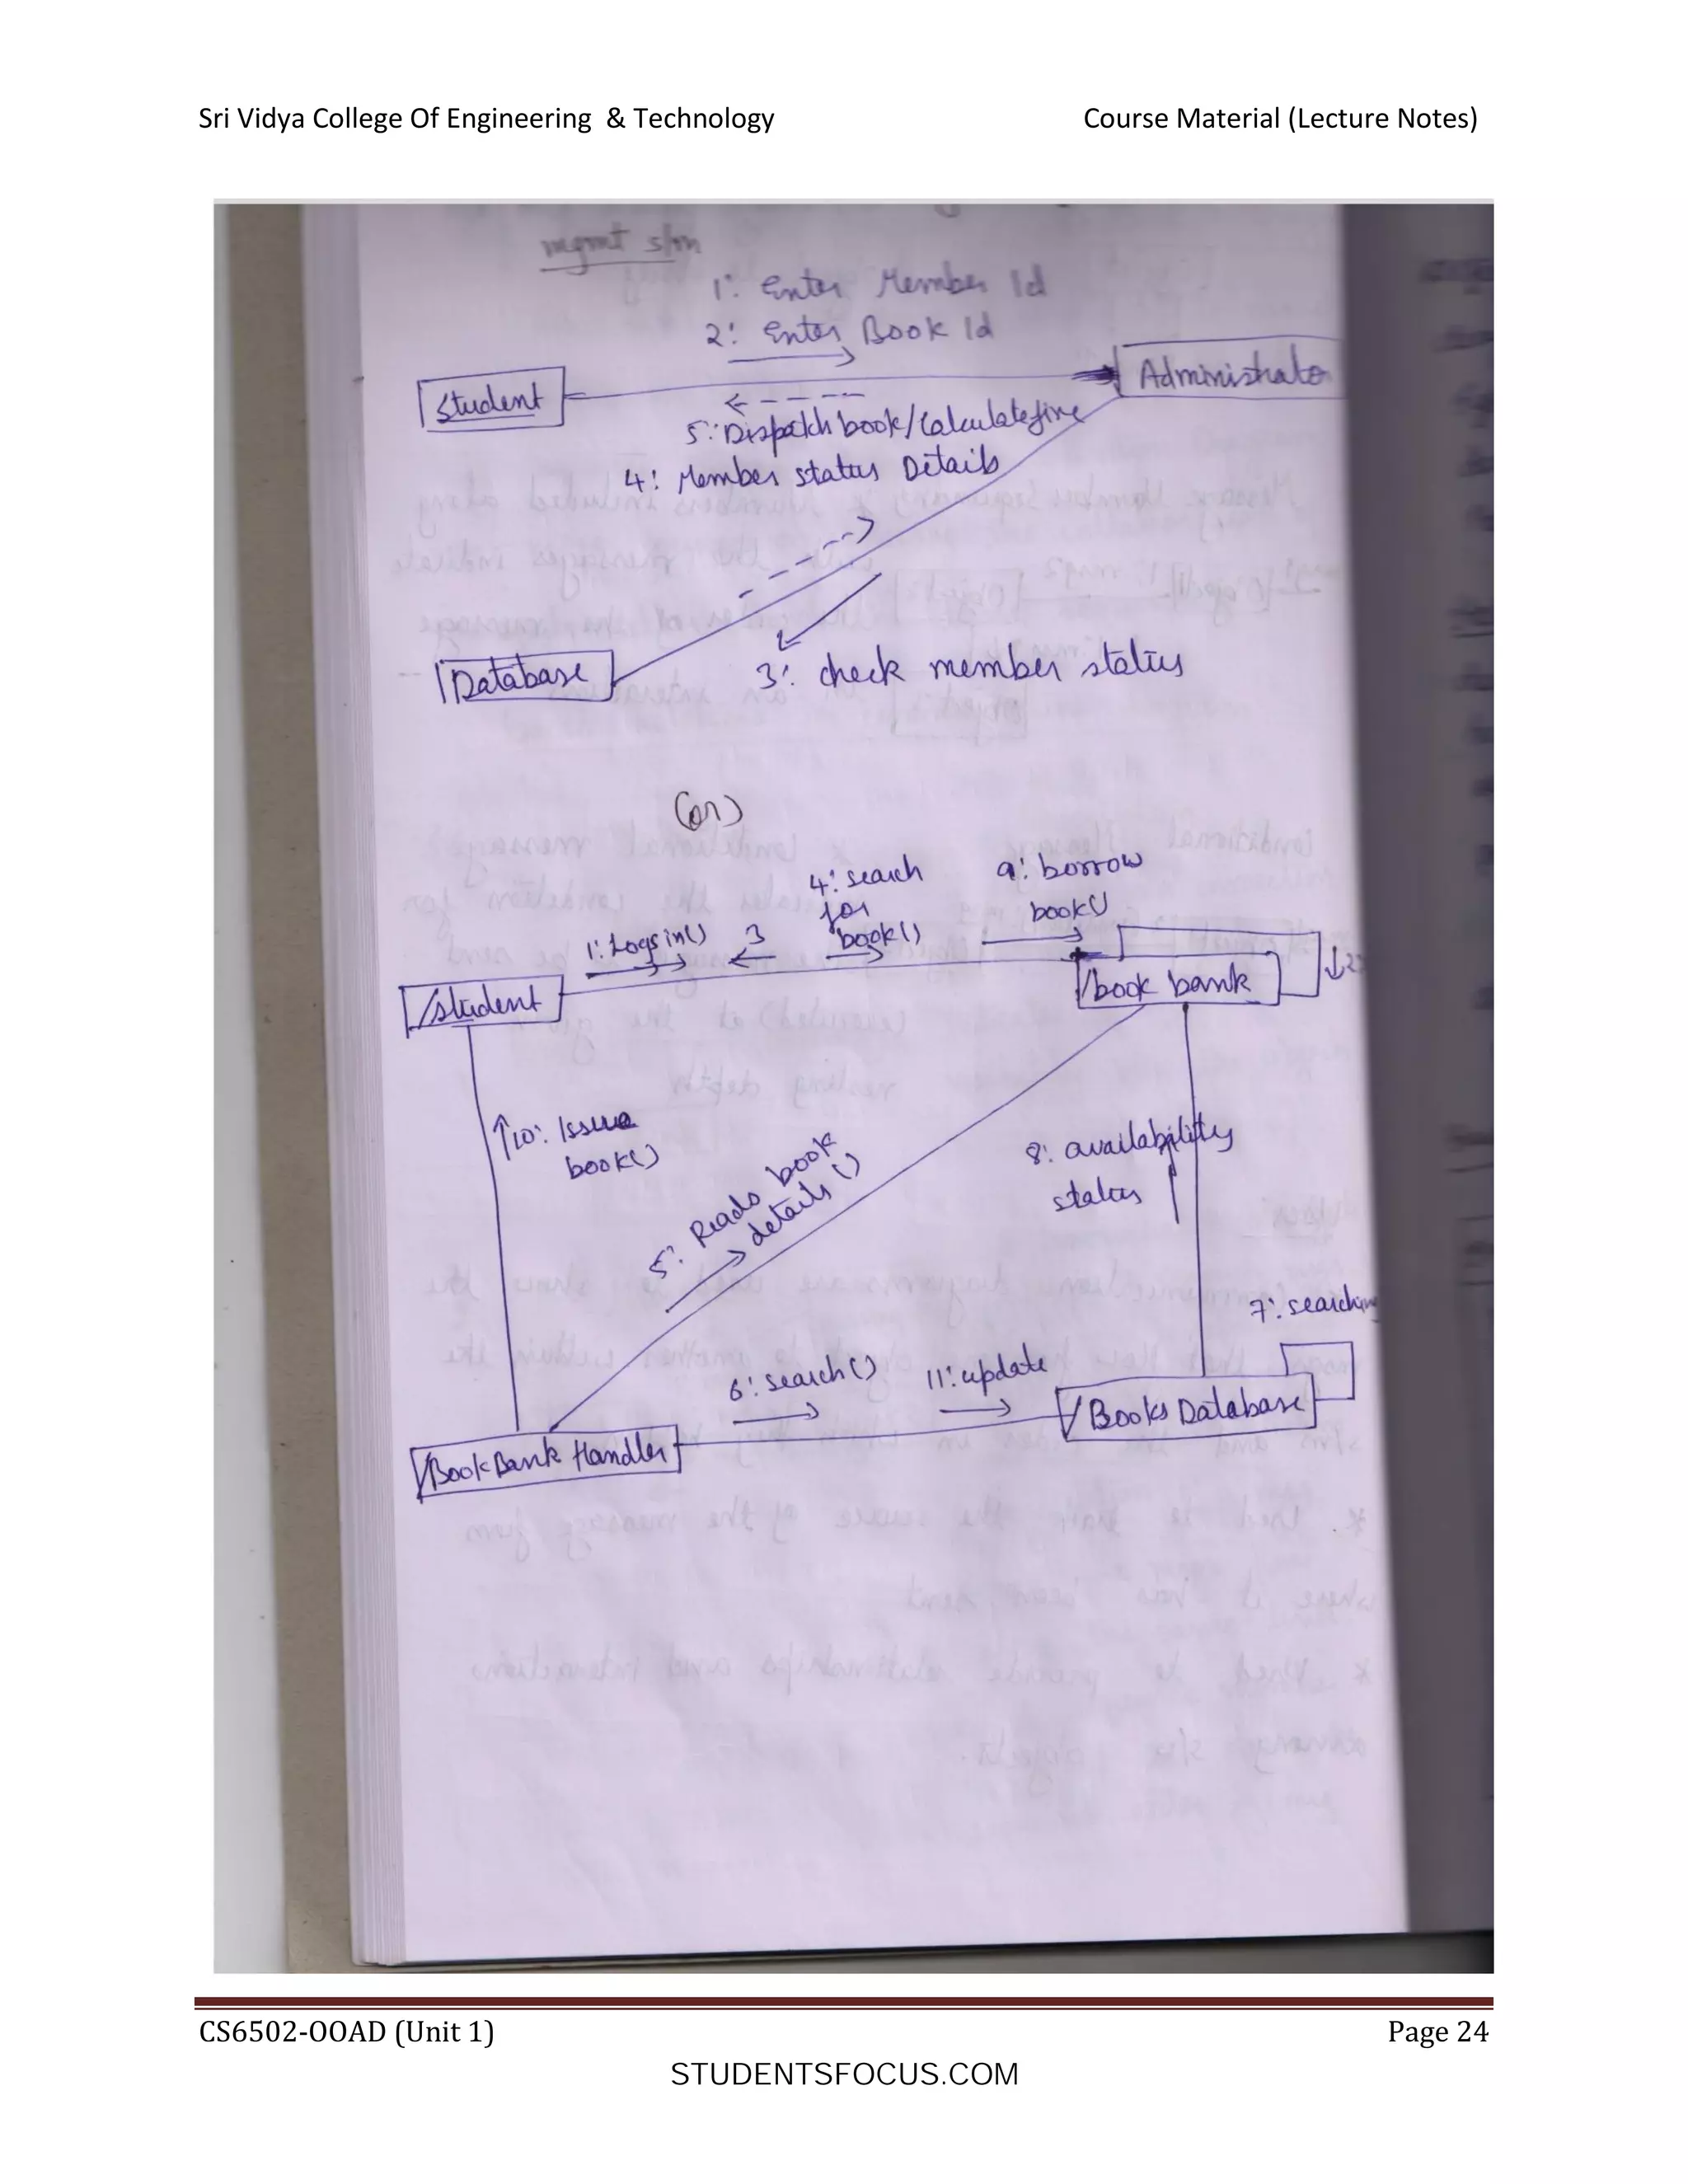 Sri Vidya College Of Engineering & Technology Course Material (Lecture Notes)
mgmt s/m
1: Enter Member Id
2: Enter Book Id
Student
Administrato
5: Dispatch book/Calculatefine
4: Member status Details
Database
3: check member status
(or)
4: search
for
book()
9: borrow
book()
1: Logs in()
3
/student
/book bank
2:
10: Issue
book()
5: Reads book
details()
8: availability
status
7: searching
6: search()
11: update
/Books Database
/BookBank Handler
CS6502-OOAD (Unit 1) Page 24
STUDENTSFOCUS.COM